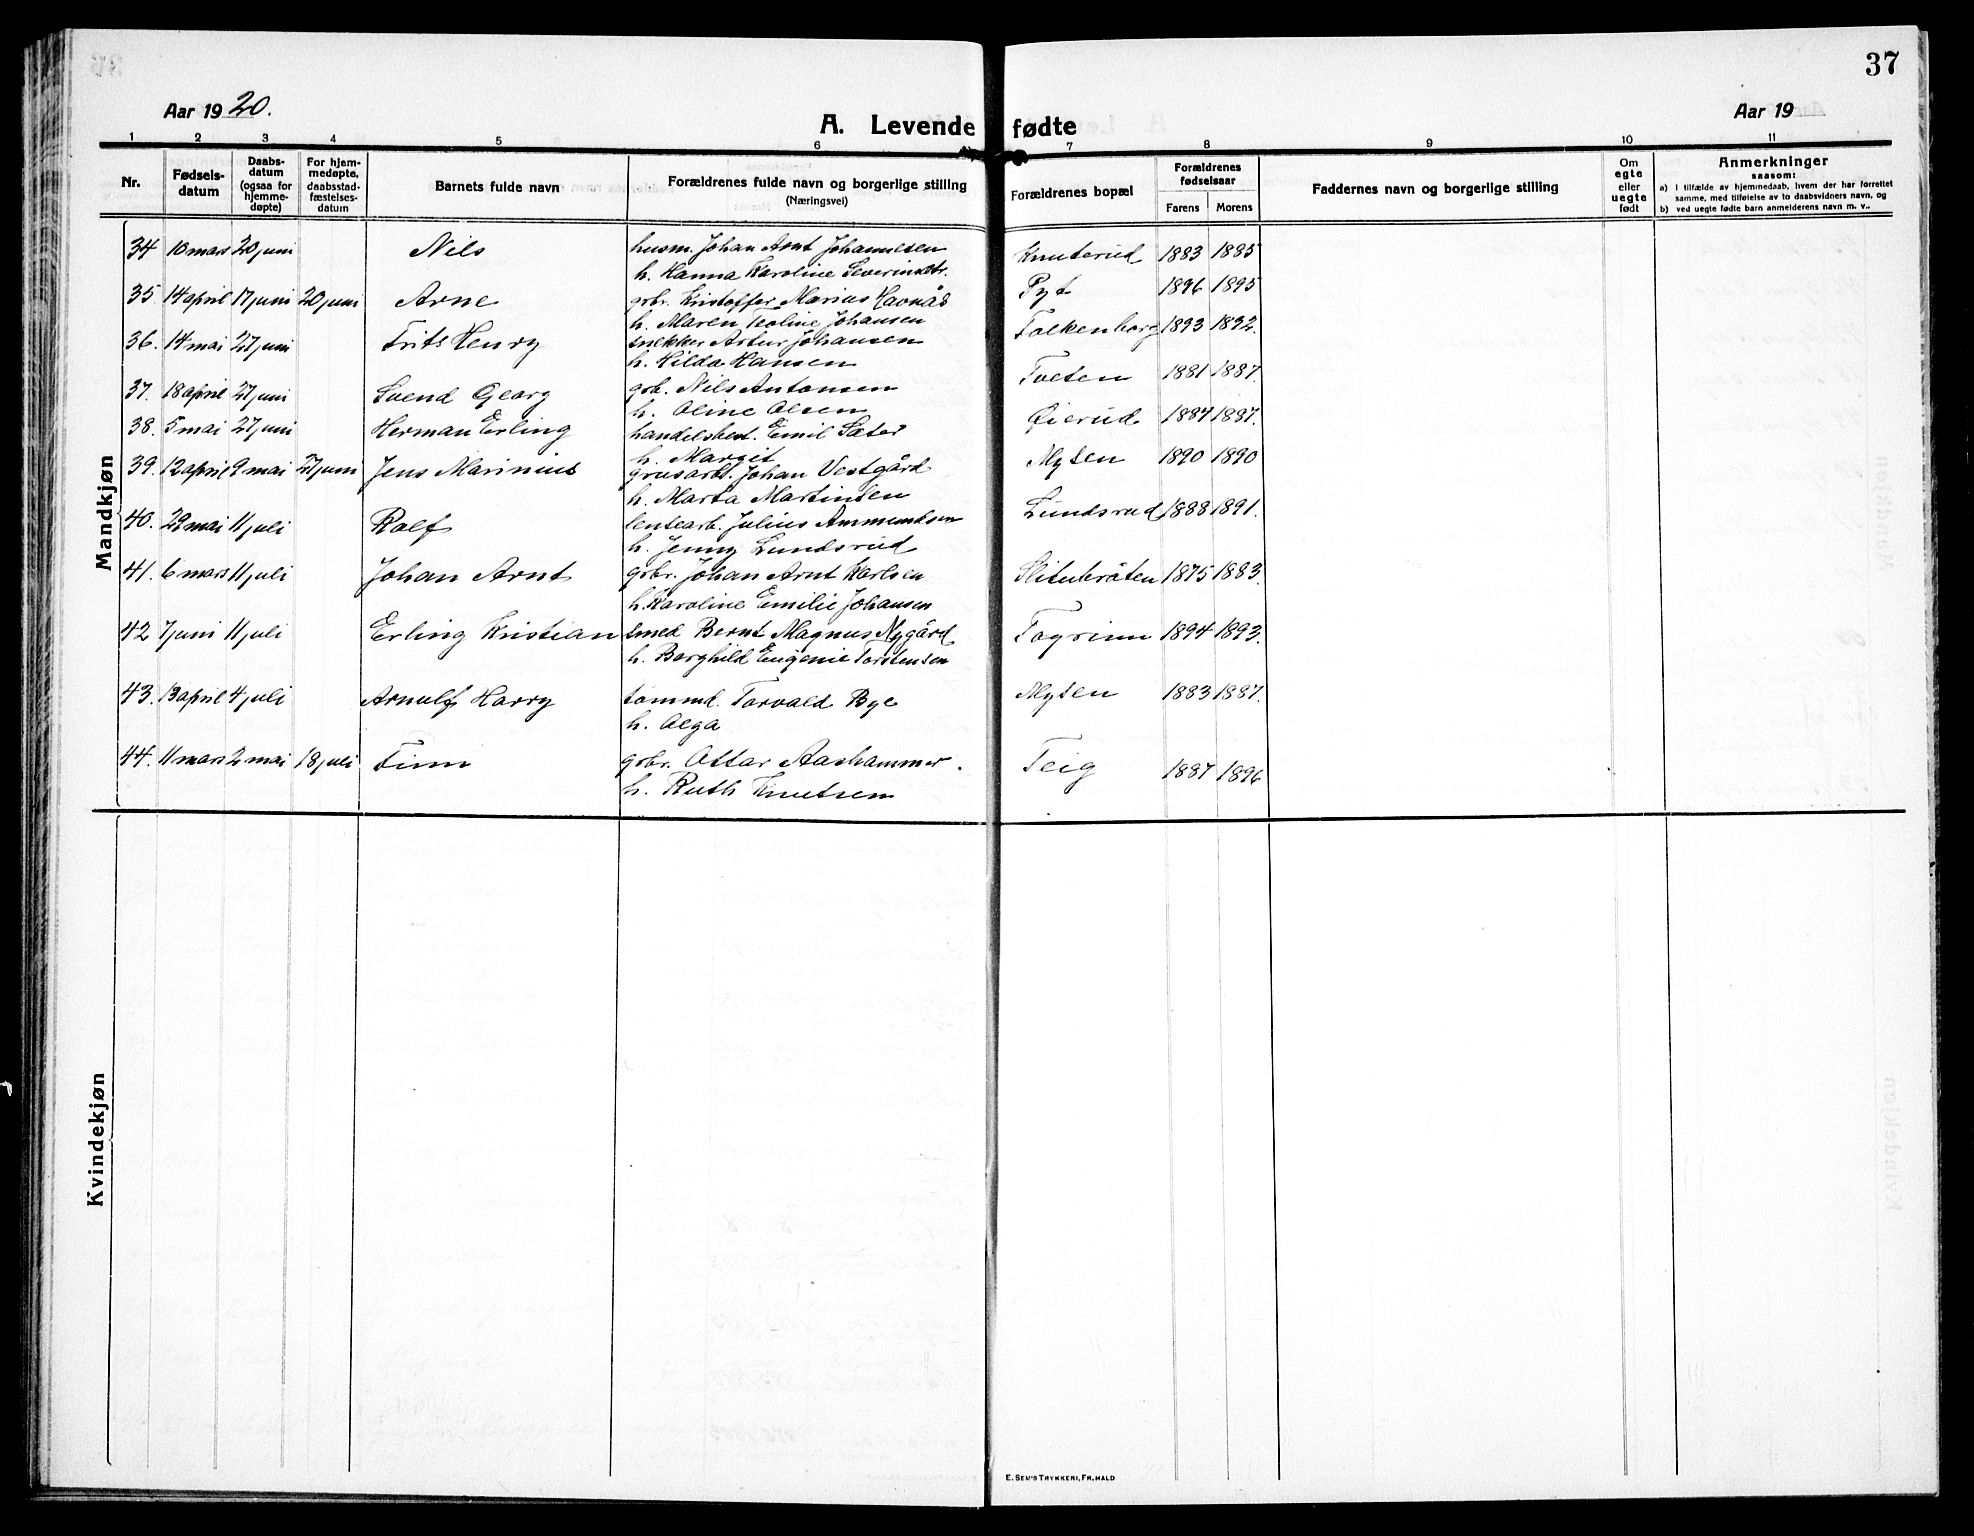 37
Aar 1920.
Aar 19
A. Levende fødte
1 2 3 4 5 6 7 8 9 10 11
Nr.
Fødsels-
datum
Daabs-
datum
(ogsaa for
hjemme-
døpte)
For hjem-
medøpte,
daabsstad-
fæstelses-
datum
Barnets fulde navn
Forældrenes fulde navn og borgerlige stilling
(Næringsvei)
Forældrenes bopæl
Forældrenes
fødselsaar
Farens Morens
Faddernes navn og borgerlige stilling
Om
egte
eller
uegte
født
Anmerkninger
saasom:
a) I tilfælde av hjemmedaab, hvem der har forrettet
samme, med tilføielse av to daabsvidners navn, og
b) ved uegte fødte barn anmelderens navn m. v..
Mandkjøn
34 10 mars 20 juni Nils husm. Johan Arnt Johannesen Knuterud 1883 1885
h. Hanna Karoline Severinsdtr.
35. 14 april 17 juni 20 juni Arne grbr. Kristoffer Marius Havnås Pyt 1896 1895
h. Maren Teoline Johansen
36. 14 mai 27 juni Frits Henry snekker Artur Johansen Falkenborg 1893 1892.
h. Hilda Hansen
37. 18 april 27 juni Svend Georg grb. Nils Antonsen Tveten 1881 1887.
h. Oline Olsen
38. 5 mai 27 juni Herman Erling handelsbest. Emil Sæter Øierud 1887 1887.
h. Margit
39. 12 april 9 mai 27 juni Jens Marinius grusarb. Johan Vestgård Mysen 1890 1890
h. Marta Martinsen
40. 29 mai 11 juli Ralf lensearb. Julius Ammundsen Lundsrud 1888 1891.
h. Jenny Lundsrud
41. 6 mars 11 juli Johan Arnt grbr. Johan Arnt Karlsen Slitubråten 1875 1883.
h. Karoline Emilie Johansen
42 7 juni 11 juli Erling Kristian smed Bernt Magnus Nygård Togrinn 1894 1893.
h. Borghild Eugenie Torstensen
43. 13 april 4 juli Arnulf Harry tømmd. Torvald Bye Mysen 1883 1887.
h. Olga
44. 11 mars 2 mai 18 juli Finn grbr. Ottar Aashammer. Teig 1887 1896
h. Ruth Knutsen
Kvindekjøn
E. SEM'S TRYKKERI, FR.HALD